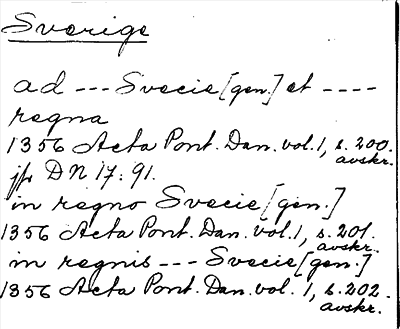 Sverige
ad --- Svecie [gen.] et ----
regna
1356 Acta Pont. Dan. vol. 1, s. 200.
avskr.
jfr DN 17: 91.
in regno Svecie [gen.]
1356 Acta Pont. Dan. vol. 1, s. 201.
avskr.
in regnis --- Svecie [gen.]
1356 Acta Pont. Dan. vol. 1, s. 202.
avskr.